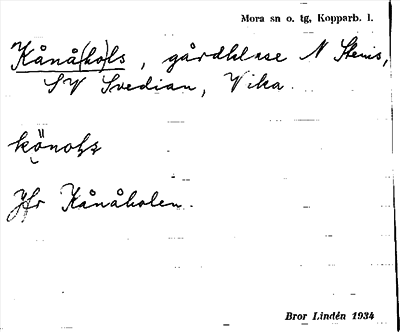 Mora sn o. tg, Kopparb. l.
Kånå(ho)ls, gårdklase N Stenis,
SV Svedian, Vika.
könoḷs
Jfr Kånåholen.
Bror Lindén 1934